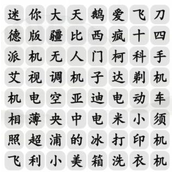 迷你大天鹅爱飞刀
德版疆比西疯十四
派机无人门柯科手
艾视调机子达剃机
机电空亚小电动车
相薄央中米冰须机
照超浦的冰打印机
飞利小美箱洗衣机